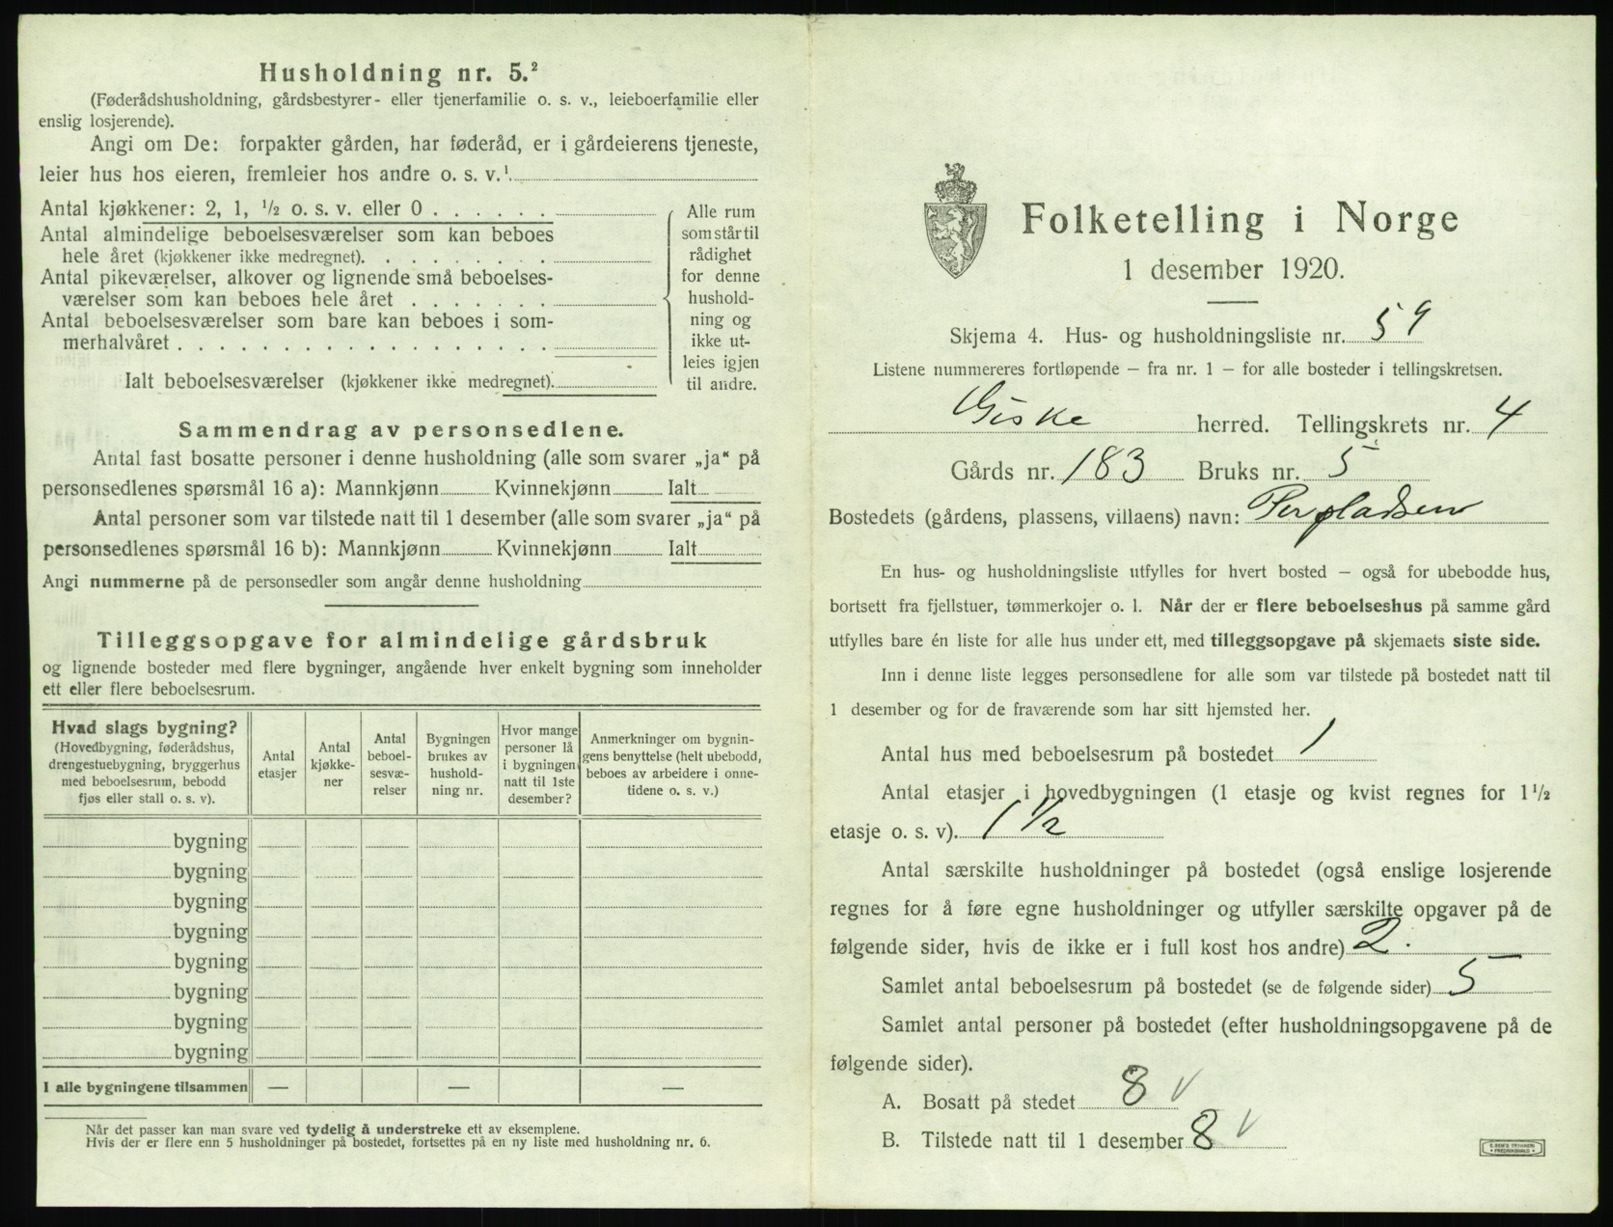 Husholdning nr. 5.²
(Føderådshusholdning, gårdsbestyrer- eller tjenerfamilie o. s. v., leieboerfamilie eller
enslig losjerende).
Angi om De: forpakter gården, har føderåd, er i gårdeierens tjeneste,
leier hus hos eieren, fremleier hos andre o. s. v.¹
Antal kjøkkener: 2, 1, ½ o. s. v. eller 0 . . . . . .
Antal almindelige beboelsesværelser som kan beboes
hele året (kjøkkener ikke medregnet). . . . . . . . .
Antal pikeværelser, alkover og lignende små beboelses-
værelser som kan beboes hele året . . . . . . .
Antal beboelsesværelser som bare kan beboes i som-
merhalvåret . . . . . . . . . . . . . . . . . .
Ialt beboelsesværelser (kjøkkener ikke medregnet).
Alle rum
som står til
rådighet
for denne
hushold-
ning og
ikke ut-
leies igjen
til andre.
Sammendrag av personsedlene.
Antal fast bosatte personer i denne husholdning (alle som svarer „ja“ på
personsedlenes spørsmål 16 a): Mannkjønn Kvinnekjønn Ialt
Antal personer som var tilstede natt til 1 desember (alle som svarer „ja“ på
personsedlenes spørsmål 16 b): Mannkjønn Kvinnekjønn Ialt
Angi nummerne på de personsedler som angår denne husholdning
Tilleggsopgave for almindelige gårdsbruk
og lignende bosteder med flere bygninger, angående hver enkelt bygning som inneholder
ett eller flere beboelsesrum.
Hvad slags bygning?
(Hovedbygning, føderådshus,
drengestuebygning, bryggerhus
med beboelsesrum, bebodd
fjøs eller stall o. s. v).
Antal
etasjer
Antal
kjøkke-
ner
Antal
beboel-
sesvæ-
relser
Bygningen
brukes av
hushold-
ning nr.
Hvor mange
personer lå
i bygningen
natt til 1ste
desember?
Anmerkninger om bygnin-
gens benyttelse (helt ubebodd,
beboes av arbeidere i onne-
tidene o. s. v.)
bygning
bygning
bygning
bygning
bygning
bygning
bygning
bygning
I alle bygningene tilsammen — — —
Når det passer kan man svare ved tydelig å understreke ett av eksemplene.
Hvis der er flere enn 5 husholdninger på bostedet, fortsettes på en ny liste med husholdning nr. 6.
Folketelling i Norge
1 desember 1920.
Skjema 4. Hus- og husholdningsliste nr. 59
Listene nummereres fortløpende – fra nr. 1 – for alle bosteder i tellingskretsen.
Giske herred. Tellingskrets nr. 4
Gårds nr. 183 Bruks nr. 5
Bostedets (gårdens, plassens, villaens) navn: Perpladsen
En hus- og husholdningsliste utfylles for hvert bosted – også for ubebodde hus,
bortsett fra fjellstuer, tømmerkojer o. l. Når der er flere beboelseshus på samme gård
utfylles bare én liste for alle hus under ett, med tilleggsopgave på skjemaets siste side.
Inn i denne liste legges personsedlene for alle som var tilstede på bostedet natt til
1 desember og for de fraværende som har sitt hjemsted her.
Antal hus med beboelsesrum på bostedet 1
Antal etasjer i hovedbygningen (1 etasje og kvist regnes for 1½
etasje o. s. v). 1½
Antal særskilte husholdninger på bostedet (også enslige losjerende
regnes for å føre egne husholdninger og utfyller særskilte opgaver på de
følgende sider, hvis de ikke er i full kost hos andre) 2.
Samlet antal beboelsesrum på bostedet (se de følgende sider) 5
Samlet antal personer på bostedet (efter husholdningsopgavene på de
følgende sider).
A. Bosatt på stedet 8 v
B. Tilstede natt til 1 desember 8 v